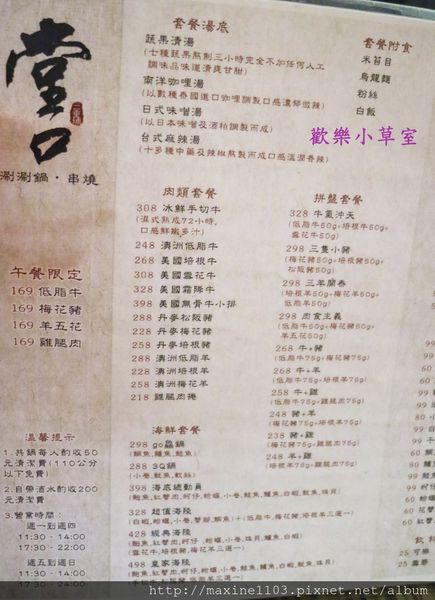 堂口
涮涮鍋・串燒
午餐限定
169 低脂牛
169 梅花豬
169 羊五花
169 雞腿肉
溫馨提示
1.共鍋每人酌收50
元清潔費(110公分
以下免費)
2.自帶酒水酌收200
元清潔費
3.營業時間：
週一到週四
11:30 - 14:00
17:30 - 22:00
週五到週日
11:30 -
17:00 - 24:00
套餐湯底
蔬果清湯
(七種蔬果熬制三小時完全不加任何人工
調味品味道清爽甘甜)
南洋咖哩湯
(以數種泰國進口咖哩調製口感濃郁微辣)
日式味噌湯
(以日本味噌及酒粕調製而成)
台式麻辣湯
(十多種中藥及辣椒熬製而成口感溫潤香辣)
套餐附食
米苔目
烏龍麵
粉絲
白飯
歡樂小草室
肉類套餐
308 冰鮮手切牛
(濕式熟成72小時,
口感鮮嫩多汁)
248 澳洲低脂牛
268 美國培根牛
308 美國雪花牛
328 美國霜降牛
398 美國無骨牛小排
288 丹麥松阪豬
218 丹麥梅花豬
238 丹麥培根豬
258 澳洲低脂羊
228 澳洲培根羊
258 澳洲梅花羊
218 雞腿肉捲
拼盤套餐
328 牛氣沖天
(低脂牛50g+培根牛50g+
雪花牛50g)
298 三隻小豬
(梅花豬50g+培根豬50g+
松阪豬50g)
298 三羊開泰
(培根羊50g+梅花羊50g+
低脂羊50g)
298 肉食主義
(低脂牛50g+梅花豬50g+
培根羊50g)
268 牛+豬
(低脂牛75g+梅花豬75g)
268 牛+羊
(低脂牛75g+培根羊75g)
258 牛+雞
(低脂牛75g+雞腿肉75g)
248 豬+羊
(梅花豬75g+培根羊75g)
238 豬+雞
(梅花豬75g+雞腿肉75g)
248 羊+雞
(培根羊75g+雞腿肉75g)
海鮮套餐
298 go蟲鍋
(鯛魚,鱸魚,鮭魚)
288 3Q鍋
(小卷,魷魚,軟絲)
398 海底總動員
328 超值海陸
428 經典海陸
498 皇家海陸
飲料
http://maxine1103.pixnet.net/album